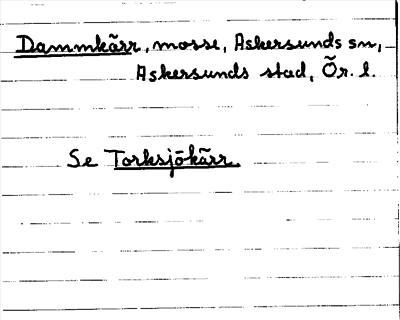 Dammkärr, mosse, Askersunds sn,
Askersunds stad, Ör. l.
Se Torksjökärr.